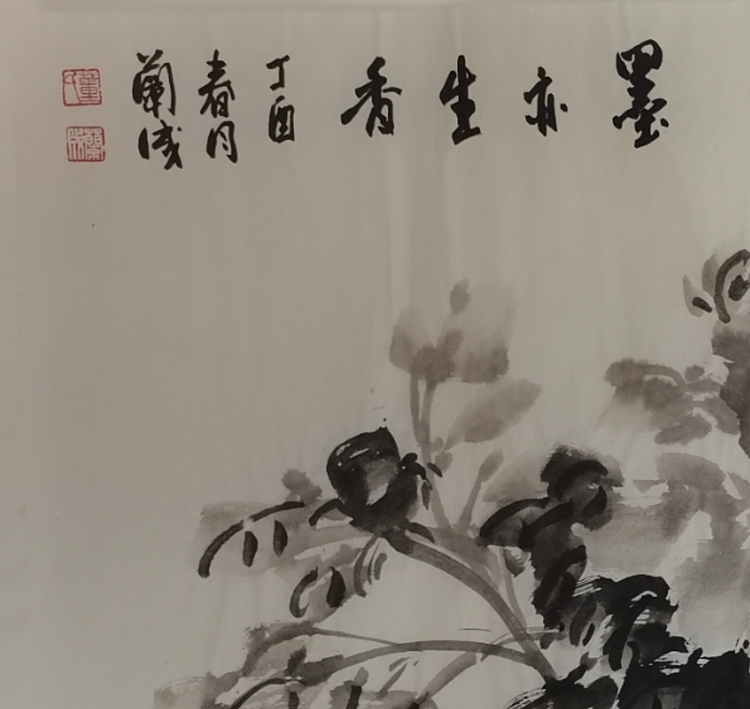 墨亦生香
丁酉
春月
蘭成
董氏